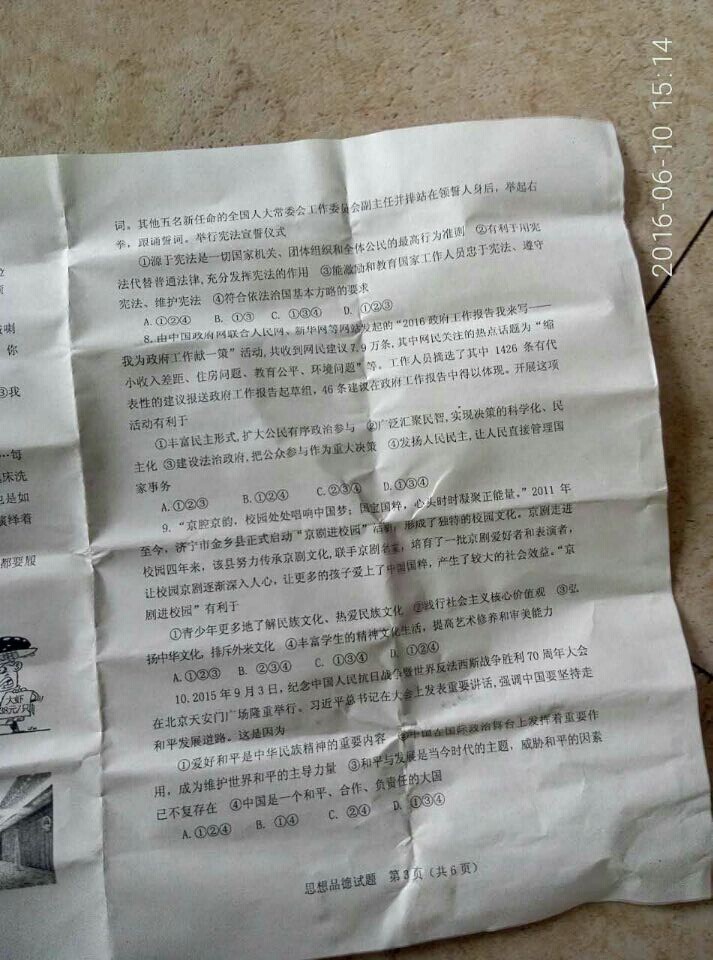 2016-06-10 15:14
词。其他五名新任命的全国人大常委会工作委员会副主任并排站在领誓人身后，举起右
拳，跟诵誓词。举行宪法宣誓仪式
①源于宪法是一切国家机关、团体组织和全体公民的最高行为准则 ②有利于用宪
法代替普通法律,充分发挥宪法的作用 ③能激励和教育国家工作人员忠于宪法、遵守
宪法、维护宪法 ④符合依法治国基本方略的要求
A.①②④ B.①③ C.①③④ D.①②③
8.由中国政府网联合人民网、新华网等网站发起的“2016政府工作报告我来写——
我为政府工作献一策”活动,共收到网民建议7.9万条,其中网民关注的热点话题为“缩
小收入差距、住房问题、教育公平、环境问题”等。工作人员摘选了其中 1426 条有代
表性的建议报送政府工作报告起草组，46条建议在政府工作报告中得以体现。开展这项
活动有利于
①丰富民主形式,扩大公民有序政治参与 ②广泛汇聚民智,实现决策的科学化、民
主化 ③建设法治政府,把公众参与作为重大决策 ④发扬人民民主,让人民直接管理国
家事务
A.①②③ B.①②④ C.②③④ D.①③④
9.“京腔京韵，校园处处唱响中国梦；国宝国粹，心头时时凝聚正能量。”2011 年
至今，济宁市金乡县正式启动“京剧进校园”活动，形成了独特的校园文化。京剧走进
校园四年来，该县努力传承京剧文化,联手京剧名家，培育了一批京剧爱好者和表演者，
让校园京剧逐渐深入人心，让更多的孩子爱上了中国国粹，产生了较大的社会效益。“京
剧进校园”有利于
①青少年更多地了解民族文化、热爱民族文化 ②践行社会主义核心价值观 ③弘
扬中华文化，排斥外来文化 ④丰富学生的精神文化生活，提高艺术修养和审美能力
A.①②③ B.②③④ C.①③④ D.①②④
10.2015年9月3日，纪念中国人民抗日战争暨世界反法西斯战争胜利70周年大会
在北京天安门广场隆重举行。习近平总书记在大会上发表重要讲话,强调中国要坚持走
和平发展道路。这是因为
①爱好和平是中华民族精神的重要内容 ②中国在国际政治舞台上发挥着重要作
用，成为维护世界和平的主导力量 ③和平与发展是当今时代的主题，威胁和平的因素
已不复存在 ④中国是一个和平、合作、负责任的大国
A.①②④ B.①④ C.②④ D.①③④
思想品德试题 第3页（共6页）
喇
你
③我
…每
床洗
也是如
演绎着
都要履
大虾
38元/只